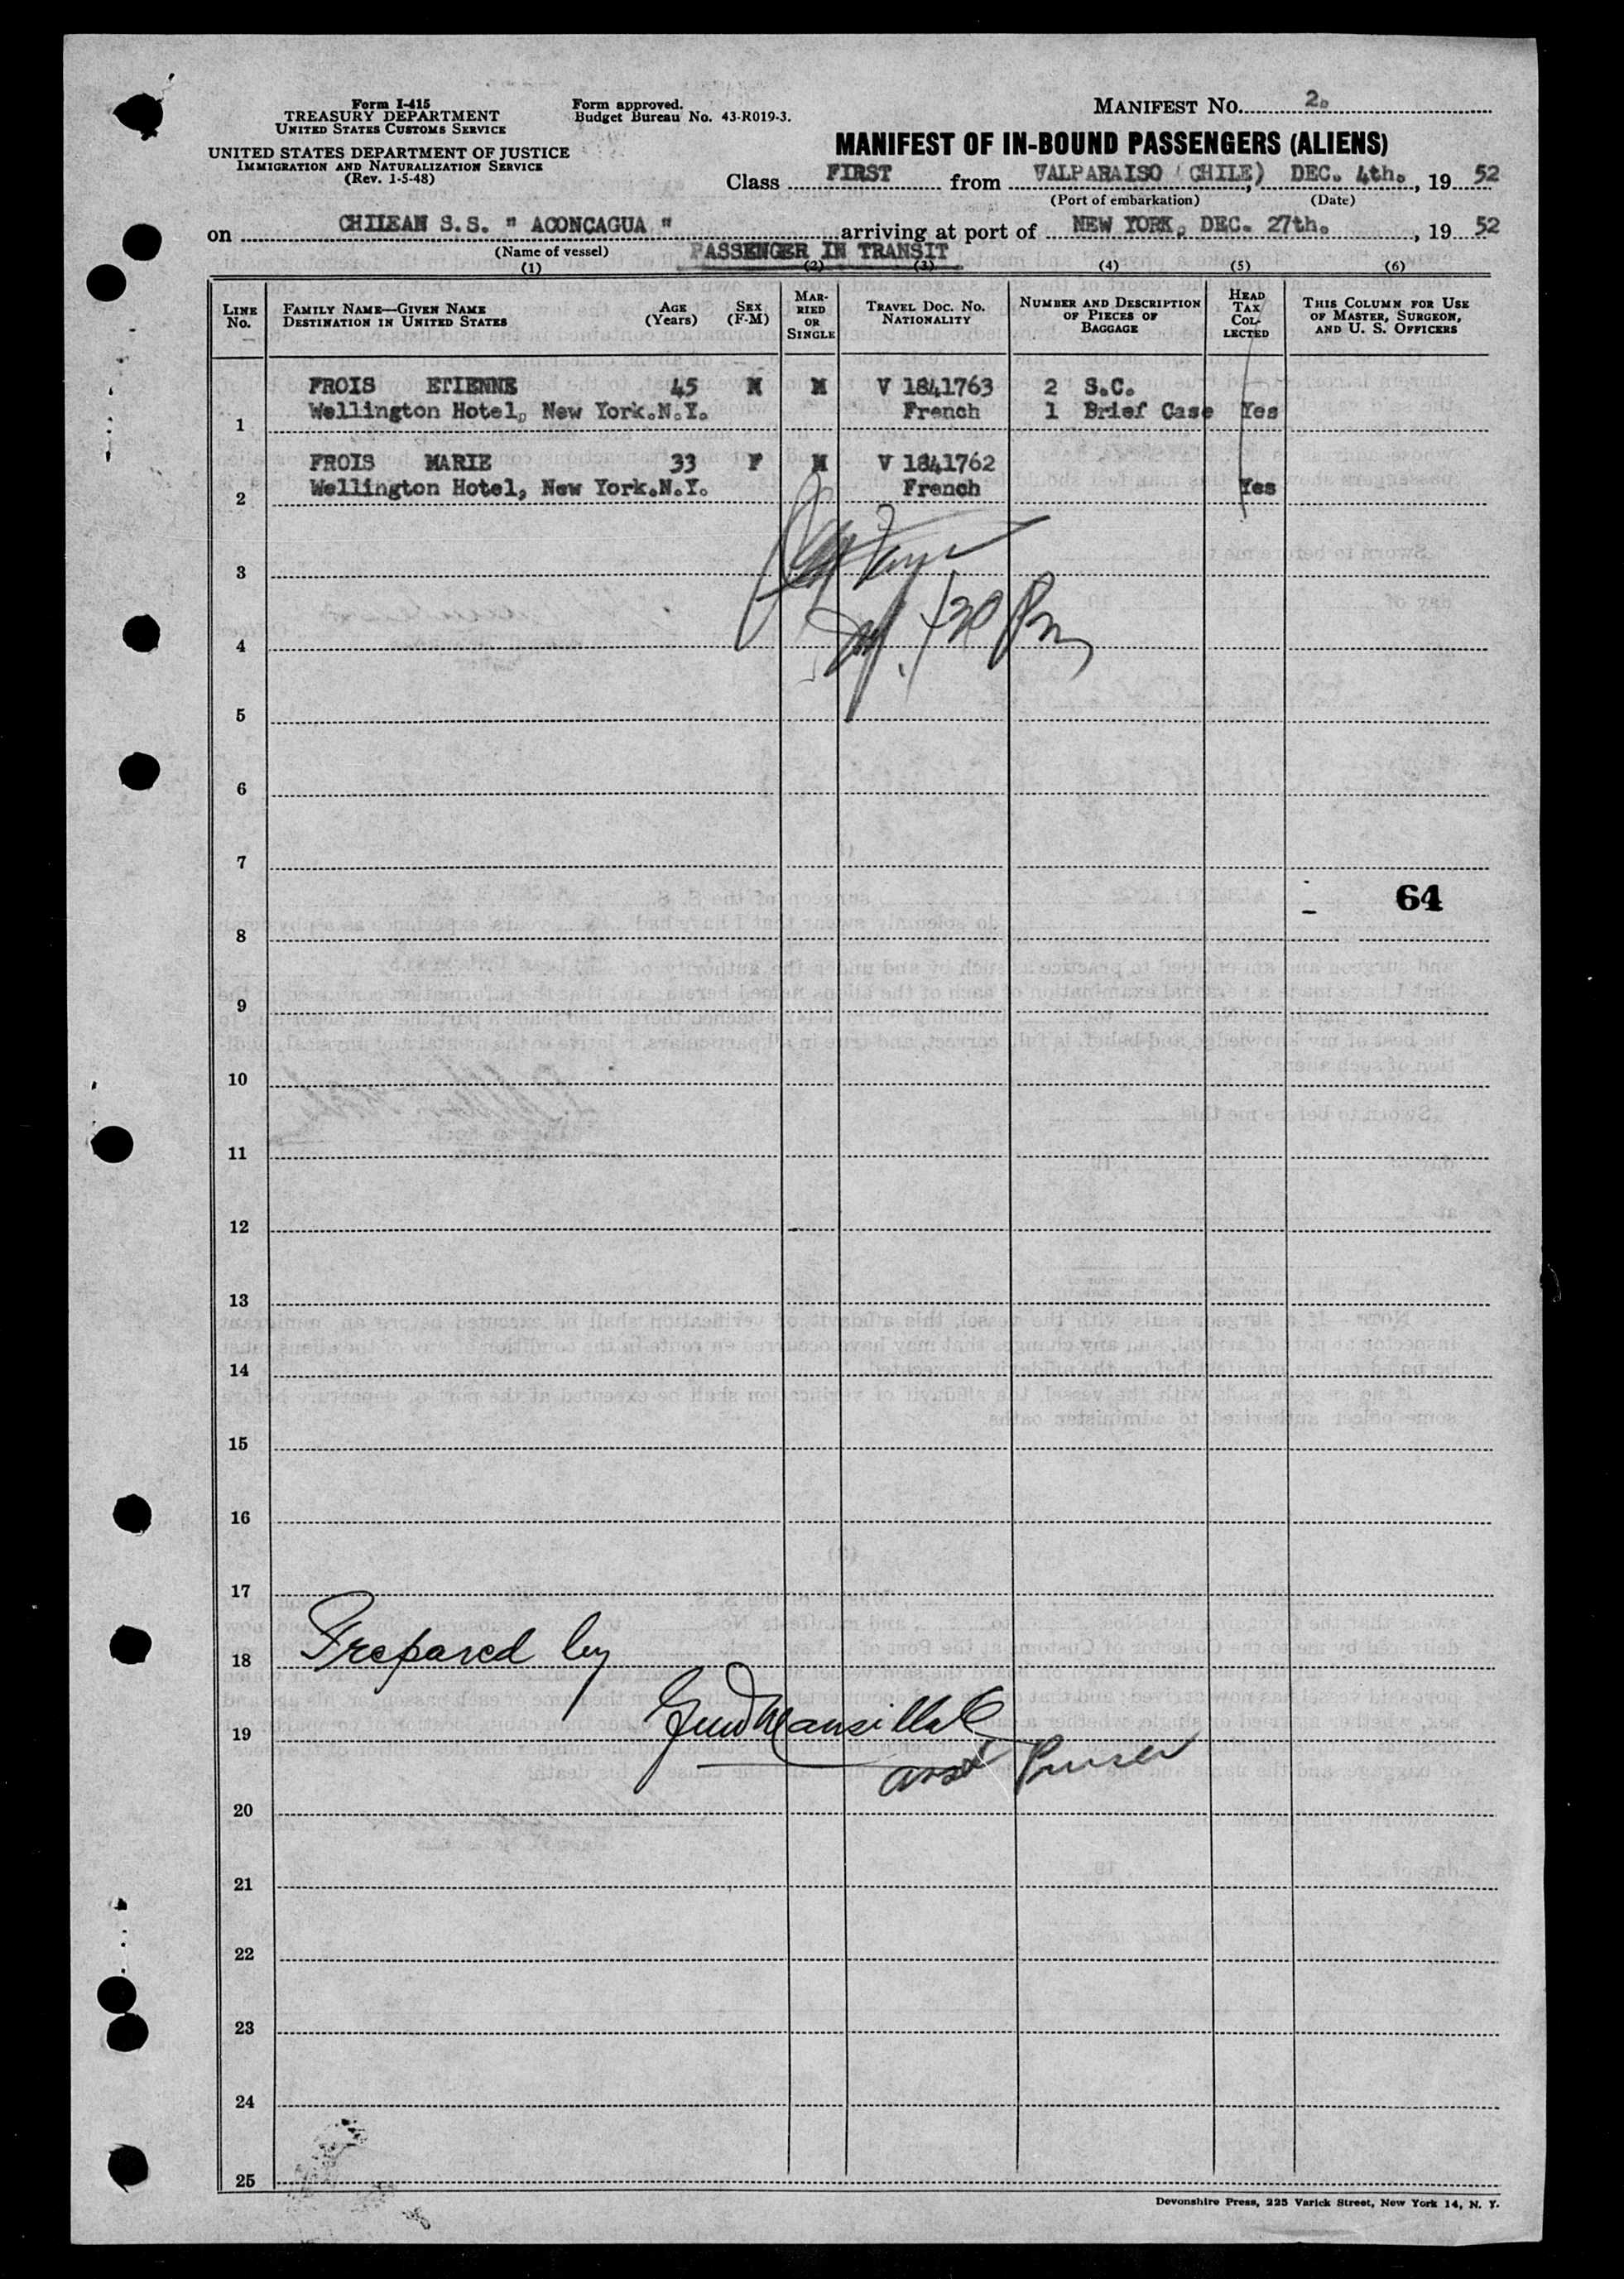 Form I-415
TREASURY DEPARTMENT
UNITED STATES CUSTOMS SERVICE
UNITED STATES DEPARTMENT OF JUSTICE
IMMIGRATION AND NATURALIZATION SERVICE
(Rev. 1-5-48)
Form approved.
Budget Bureau No. 43-R019-3.
MANIFEST NO. 2.
MANIFEST OF IN-BOUND PASSENGERS (ALIENS)
Class FIRST from VALPARAISO (CHILE) DEC. 4th., 19 52
(Port of embarkation) (Date)
on CHILEAN S.S. " ACONCAGUA " arriving at port of NEW YORK, DEC. 27th., 19 52
(Name of vessel) PASSENGER IN TRANSIT
(1) (2) (3) (4) (5) (6)
LINE No. FAMILY NAME—GIVEN NAME DESTINATION IN UNITED STATES AGE (Years) SEX (F-M) MARRIED OR SINGLE TRAVEL DOC. NO. NATIONALITY NUMBER AND DESCRIPTION OF PIECES OF BAGGAGE HEAD TAX COLLECTED THIS COLUMN FOR USE OF MASTER, SURGEON, AND U. S. OFFICERS
FROIS ETIENNE 45 M M V 1841763 2 S.C.
1 Wellington Hotel, New York.N.Y. French 1 Brief Case Yes
FROIS MARIE 33 F M V 1841762
2 Wellington Hotel, New York.N.Y. French Yes
3
4
5
6
7
64
8
9
10
11
12
13
14
15
16
17
18 Prepared by
19
asst Purser
20
21
22
23
24
25
Devonshire Press, 225 Varick Street, New York 14, N. Y.